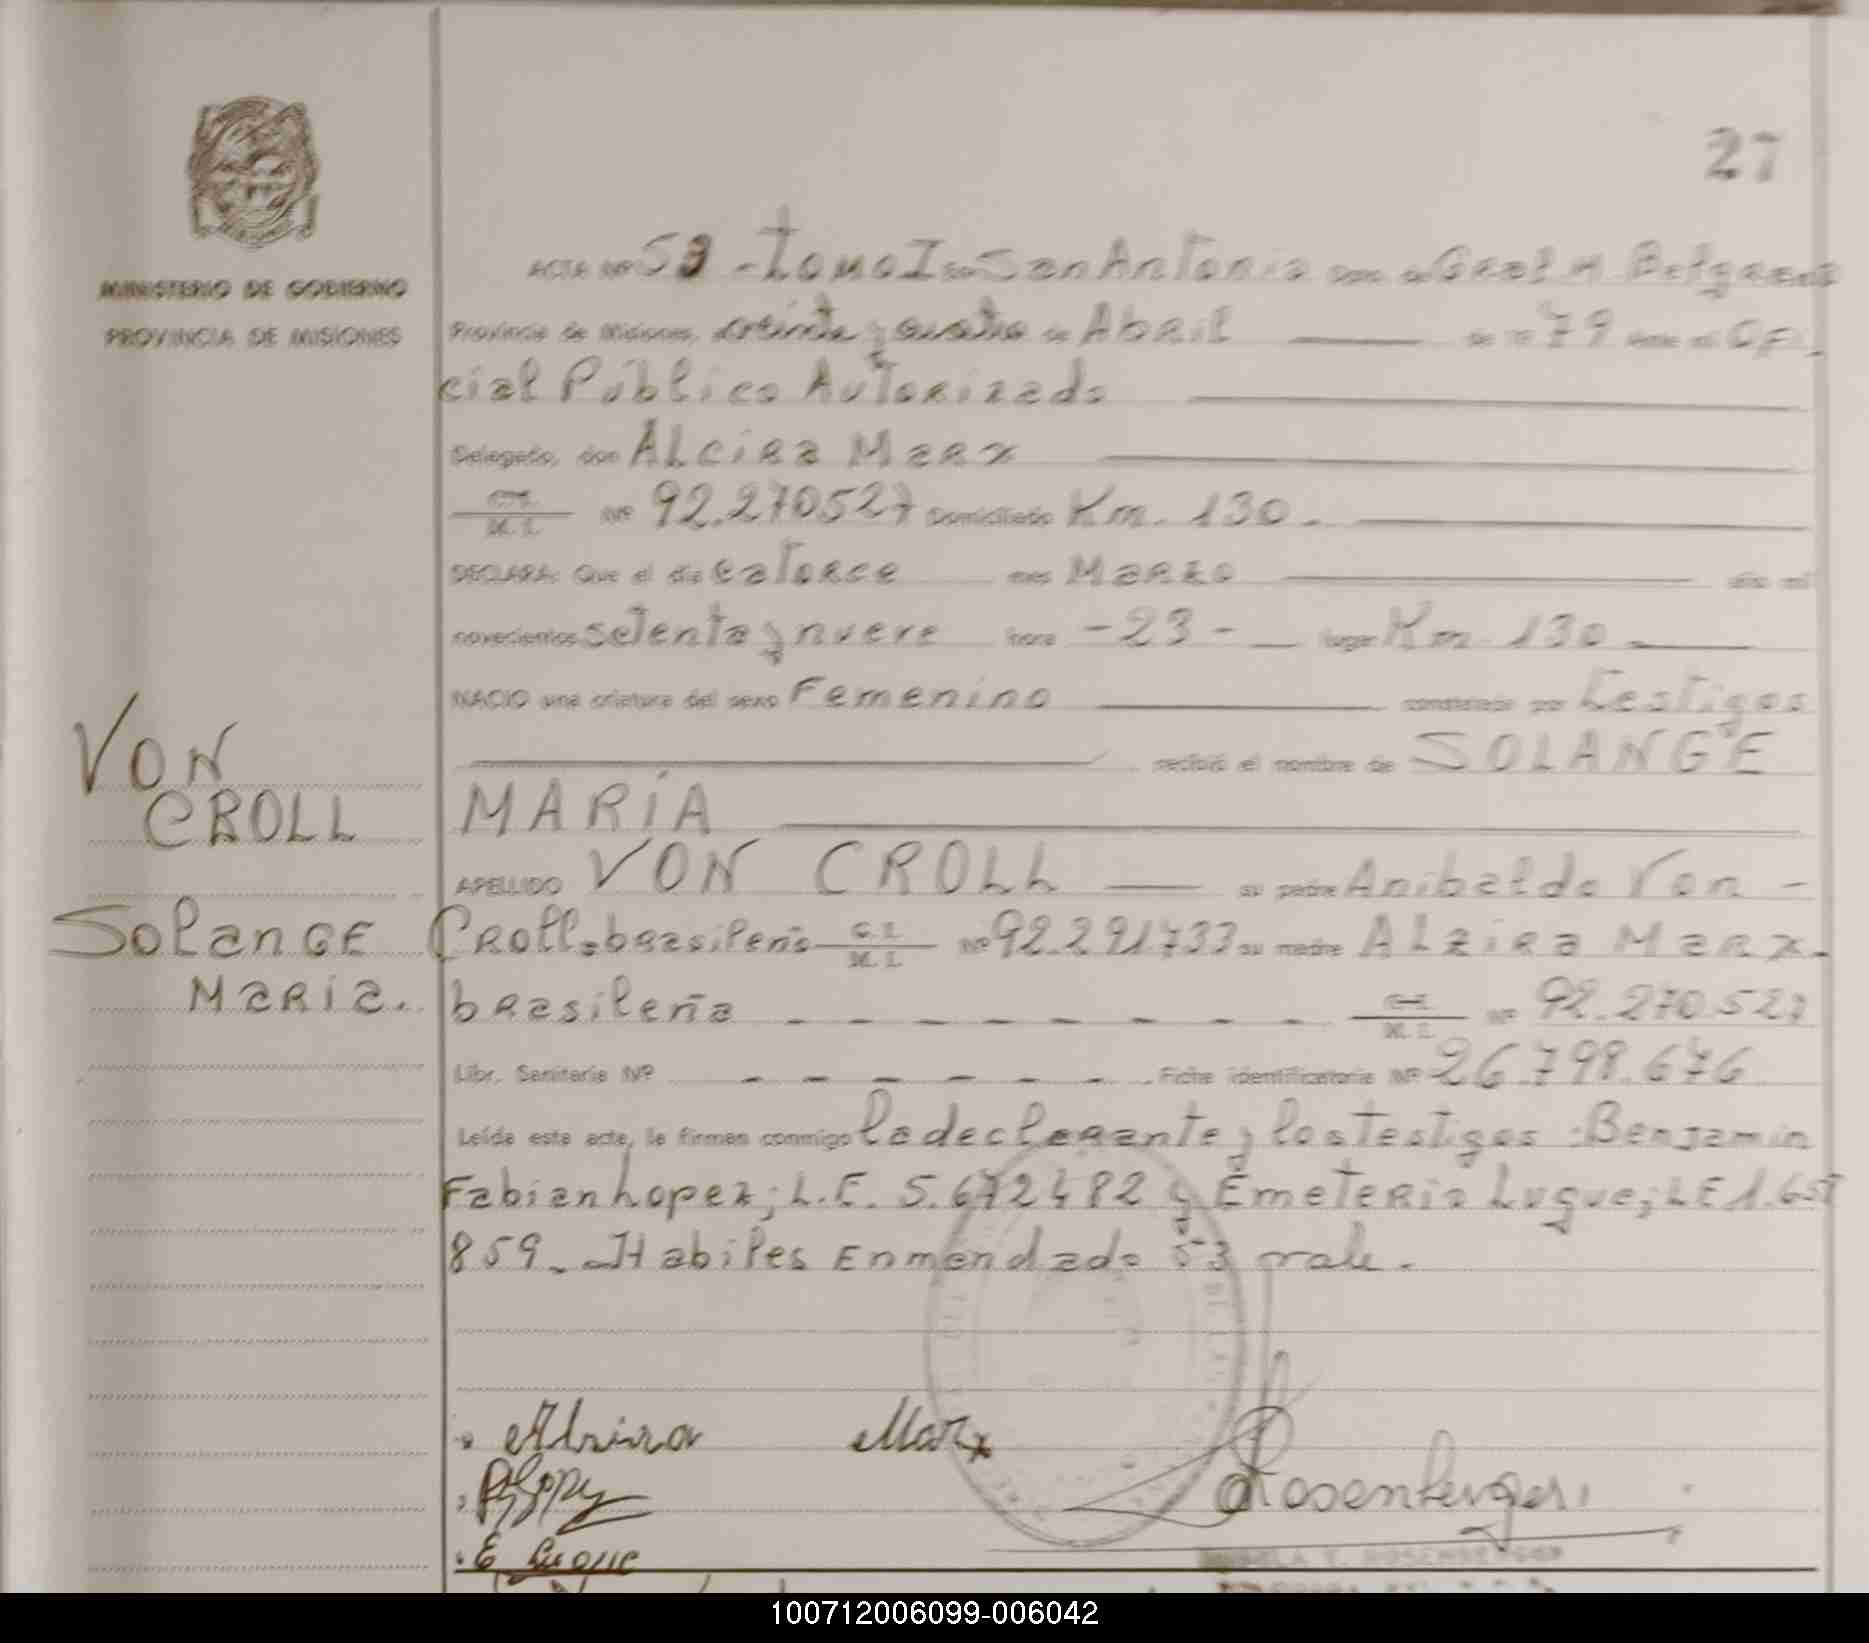 27
MINISTERIO DE GOBIERNO
PROVINCIA DE MISIONES
ACTA Nº 53 - Tomo I San Antonio Dpto. de Gral M Belgrano
Provincia de Misiones, veinte y cuatro de Abril de 19 79 Ante mí Ofi.
cial Público Autorizado
Delegado, don Alcira Marx
C.I. M.I. Nº 92.270527 Domiciliado Km. 130.
DECLARA: Que el día catorce mes Marzo año mil
novecientos setenta y nueve hora -23- lugar Km 130
NACIO una criatura del sexo Femenino constatado por Testigos
recibió el nombre de SOLANGE
MARÍA
APELLIDO VON CROLL su padre Anibaldo Von -
Croll=brasileño C.I. M.I. Nº 92.291733 su madre Alzira Marx.
brasileña C.I. M.I. Nº 92.270.527
Libr. Sanitaria Nº - - - - - - Ficha identificatoria Nº 26.798.676
Leída este acta, la firman conmigo la declarante y los testigos: Benjamin
Fabian Lopez; L.E. 5.672482 y Emeterio Luque; LE 1.657
859. Habiles Enmendado 53 vale.
VON
CROLL
Solange
María.
Alzira Marx
E Luque
Rosenberger
100712006099-006042